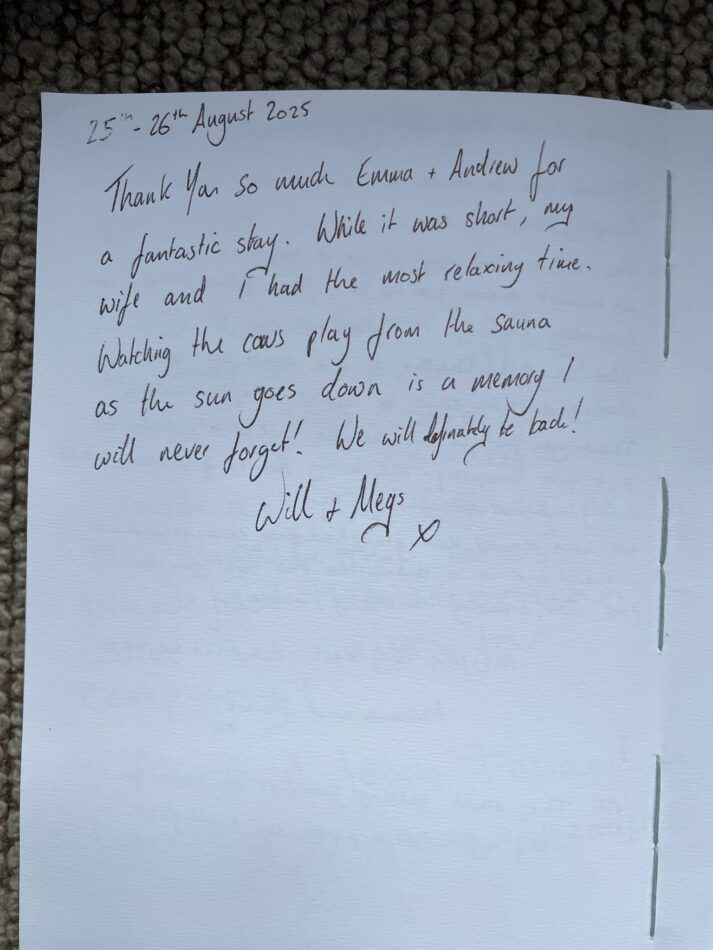 25th - 26th August 2025
Thank You so much Emma + Andrew for
a fantastic stay. While it was short, my
wife and I had the most relaxing time.
Watching the cows play from the sauna
as the sun goes down is a memory I
will never forget! We will definately be back!
Will + Megs
x